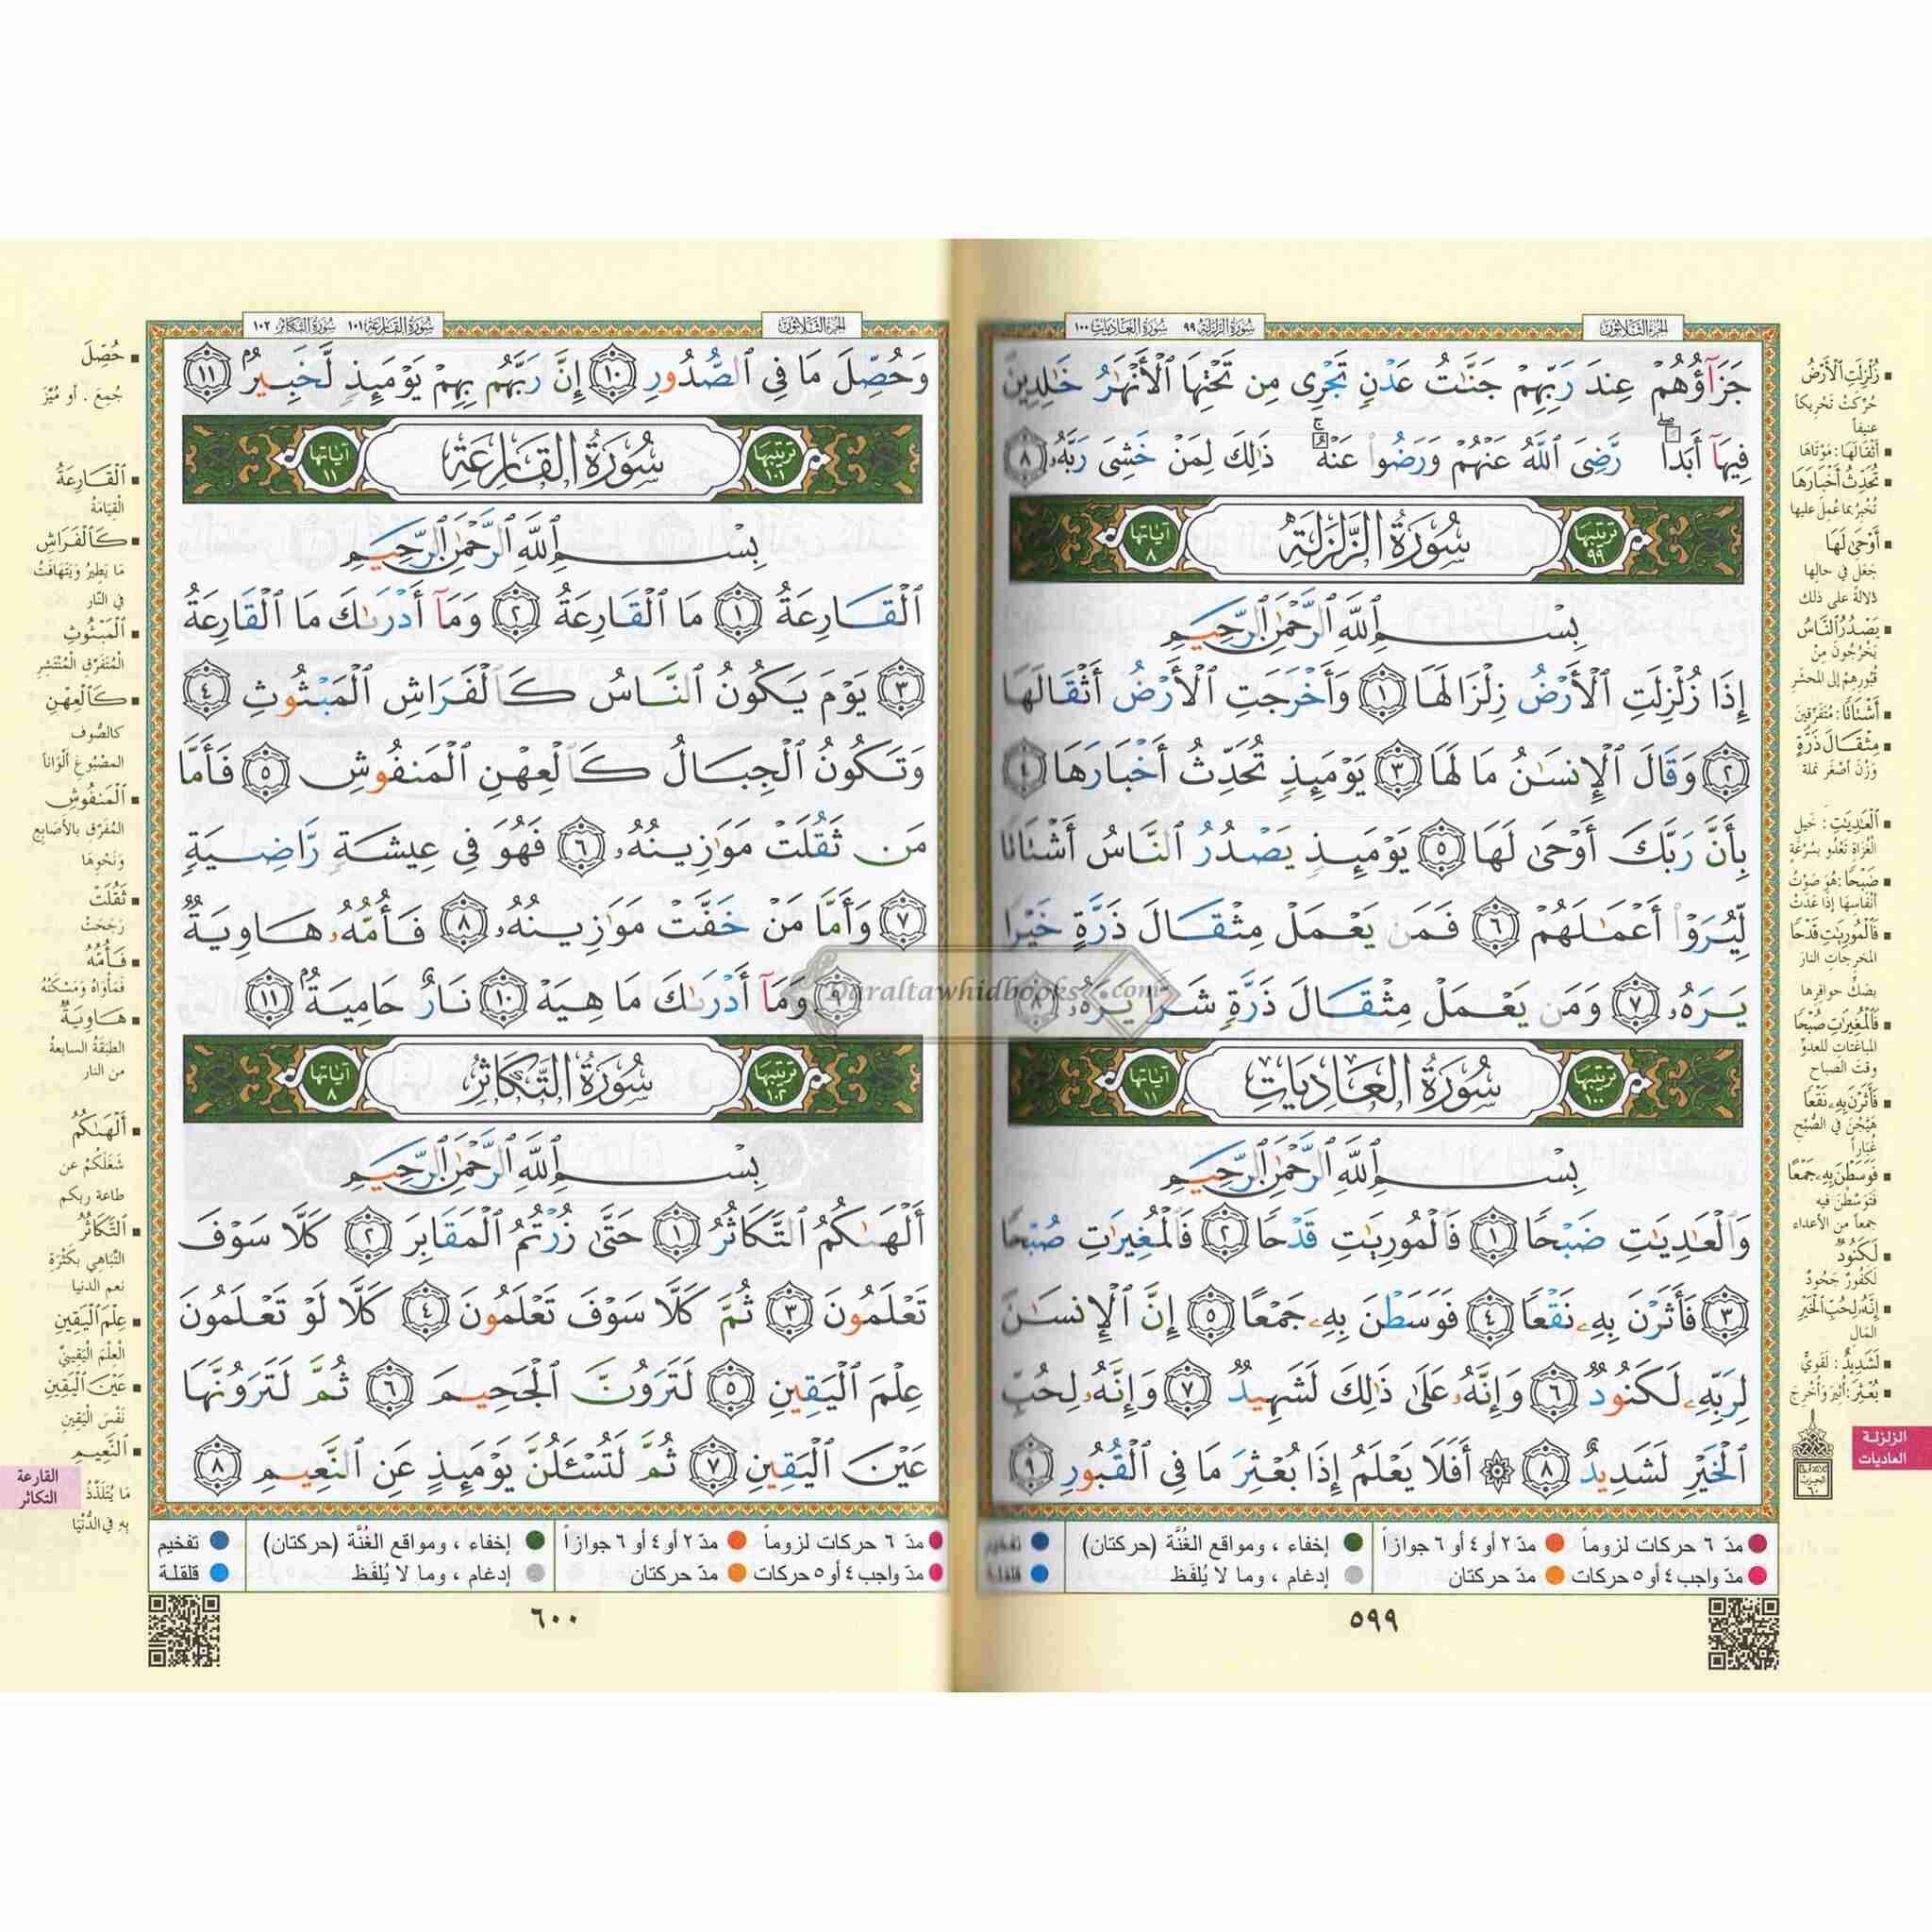 الجزء الثلاثون
سورة الزلزلة ٩٩ سورة العاديات ١٠٠
جَزَآؤُهُمْ عِندَ رَبِّهِمْ جَنَّٰتُ عَدْنٍ تَجْرِى مِن تَحْتِهَا ٱلْأَنْهَٰرُ خَٰلِدِينَ
فِيهَآ أَبَدًا ۖ رَّضِىَ ٱللَّهُ عَنْهُمْ وَرَضُوا۟ عَنْهُ ۚ ذَٰلِكَ لِمَنْ خَشِىَ رَبَّهُۥ ٨
ترتيبها ٩٩ سُورَةُ الزَّلزَلةِ آياتها ٨
بِسْمِ ٱللَّهِ ٱلرَّحْمَٰنِ ٱلرَّحِيمِ
إِذَا زُلْزِلَتِ ٱلْأَرْضُ زِلْزَالَهَا ١ وَأَخْرَجَتِ ٱلْأَرْضُ أَثْقَالَهَا
٢ وَقَالَ ٱلْإِنسَٰنُ مَا لَهَا ٣ يَوْمَئِذٍ تُحَدِّثُ أَخْبَارَهَا ٤
بِأَنَّ رَبَّكَ أَوْحَىٰ لَهَا ٥ يَوْمَئِذٍ يَصْدُرُ ٱلنَّاسُ أَشْتَاتًا
لِّيُرَوْا۟ أَعْمَٰلَهُمْ ٦ فَمَن يَعْمَلْ مِثْقَالَ ذَرَّةٍ خَيْرًا
يَرَهُۥ ٧ وَمَن يَعْمَلْ مِثْقَالَ ذَرَّةٍ شَرًّا يَرَهُۥ ٨
ترتيبها ١٠٠ سُورَةُ العَاديَاتِ آياتها ١١
بِسْمِ ٱللَّهِ ٱلرَّحْمَٰنِ ٱلرَّحِيمِ
وَٱلْعَٰدِيَٰتِ ضَبْحًا ١ فَٱلْمُورِيَٰتِ قَدْحًا ٢ فَٱلْمُغِيرَٰتِ صُبْحًا
٣ فَأَثَرْنَ بِهِۦ نَقْعًا ٤ فَوَسَطْنَ بِهِۦ جَمْعًا ٥ إِنَّ ٱلْإِنسَٰنَ
لِرَبِّهِۦ لَكَنُودٌ ٦ وَإِنَّهُۥ عَلَىٰ ذَٰلِكَ لَشَهِيدٌ ٧ وَإِنَّهُۥ لِحُبِّ
ٱلْخَيْرِ لَشَدِيدٌ ٨ ۞ أَفَلَا يَعْلَمُ إِذَا بُعْثِرَ مَا فِى ٱلْقُبُورِ ٩
زُلْزِلَتِ ٱلْأَرْضُ
حُرِّكَتْ تَحْريكاً
عنيفاً
أَثْقَالَهَا: مَوْتَاهَا
تُحَدِّثُ أَخْبَارَهَا
تُخْبِرُ بما عُمِلَ عليها
أَوْحَىٰ لَهَا
جَعَلَ في حالِها
دَلالةً على ذلك
يَصْدُرُ ٱلنَّاسُ
يَخْرُجُونَ مِنْ
قُبُورِهِمْ إلى المحشَرِ
أَشْتَاتًا: مُتَفَرِّقِينَ
مِثْقَالَ ذَرَّةٍ
وَزْنَ أصْغَرِ نملة
ٱلْعَٰدِيَٰتِ: خَيلِ
الغُزاةِ تَعْدُو بسُرْعَةٍ
ضَبْحًا: هُوَ صَوْتُ
أنْفاسِهَا إذا عَدَتْ
فَٱلْمُورِيَٰتِ قَدْحًا
المخرجاتِ النارَ
بصَكِّ حوافِرها
فَٱلْمُغِيرَٰتِ صُبْحًا
المباغتاتِ للعدوِّ
وقتَ الصباحِ
فَأَثَرْنَ بِهِۦ نَقْعًا
هَيَّجْنَ في الصُّبْحِ
غُباراً
فَوَسَطْنَ بِهِۦ جَمْعًا
فَتَوَسَّطْنَ فيه
جمعاً من الأعداء
لَكَنُودٌ
لَكَفُورٌ جَحُودٌ
إِنَّهُۥ لِحُبِّ ٱلْخَيْرِ
المَال
لَشَدِيدٌ: لَقَوِيٌّ
بُعْثِرَ: أُثِيرَ وَأُخْرِجَ
الزلزلة
العاديات
مدّ ٦ حركات لزوماً مدّ ٢ أو ٤ أو ٦ جوازاً إخفاء ، ومواقع الغُنَّة (حركتان) تفخيم
مدّ واجب ٤ أو ٥ حركات مدّ حركتان إدغام ، وما لا يُلفَظ قلقلة
٥٩٩
الجزء الثلاثون
سورة القارعة ١٠١ سورة التكاثر ١٠٢
وَحُصِّلَ مَا فِى ٱلصُّدُورِ ١٠ إِنَّ رَبَّهُم بِهِمْ يَوْمَئِذٍ لَّخَبِيرٌۢ ١١
ترتيبها ١٠١ سُورَةُ القَارعَةِ آياتها ١١
بِسْمِ ٱللَّهِ ٱلرَّحْمَٰنِ ٱلرَّحِيمِ
ٱلْقَارِعَةُ ١ مَا ٱلْقَارِعَةُ ٢ وَمَآ أَدْرَىٰكَ مَا ٱلْقَارِعَةُ
٣ يَوْمَ يَكُونُ ٱلنَّاسُ كَٱلْفَرَاشِ ٱلْمَبْثُوثِ ٤
وَتَكُونُ ٱلْجِبَالُ كَٱلْعِهْنِ ٱلْمَنفُوشِ ٥ فَأَمَّا
مَن ثَقُلَتْ مَوَٰزِينُهُۥ ٦ فَهُوَ فِى عِيشَةٍ رَّاضِيَةٍ
٧ وَأَمَّا مَنْ خَفَّتْ مَوَٰزِينُهُۥ ٨ فَأُمُّهُۥ هَاوِيَةٌ
٩ وَمَآ أَدْرَىٰكَ مَا هِيَهْ ١٠ نَارٌ حَامِيَةٌۢ ١١
ترتيبها ١٠٢ سُورَةُ التَّكاثُرِ آياتها ٨
بِسْمِ ٱللَّهِ ٱلرَّحْمَٰنِ ٱلرَّحِيمِ
أَلْهَىٰكُمُ ٱلتَّكَاثُرُ ١ حَتَّىٰ زُرْتُمُ ٱلْمَقَابِرَ ٢ كَلَّا سَوْفَ
تَعْلَمُونَ ٣ ثُمَّ كَلَّا سَوْفَ تَعْلَمُونَ ٤ كَلَّا لَوْ تَعْلَمُونَ
عِلْمَ ٱلْيَقِينِ ٥ لَتَرَوُنَّ ٱلْجَحِيمَ ٦ ثُمَّ لَتَرَوُنَّهَا
عَيْنَ ٱلْيَقِينِ ٧ ثُمَّ لَتُسْـَٔلُنَّ يَوْمَئِذٍ عَنِ ٱلنَّعِيمِ ٨
حُصِّلَ
جُمِعَ . أو مُيِّزَ
ٱلْقَارِعَةُ
القِيَامَةُ
كَٱلْفَرَاشِ
مَا يَطِيرُ وَيَتَهَافَتُ
في النَّار
ٱلْمَبْثُوثِ
المُتَفَرِّقِ المُنْتَشِرِ
كَٱلْعِهْنِ
كالصُّوف
المصْبُوغِ ألْوَاناً
ٱلْمَنفُوشِ
المُفَرَّقِ بالأَصَابِعِ
وَنَحْوِهَا
ثَقُلَتْ
رَجَحَتْ
فَأُمُّهُۥ
فَمَأْوَاهُ وَمَسْكَنُهُ
هَاوِيَةٌ
الطبقَةُ السابعةُ
من النار
أَلْهَىٰكُمُ
شَغَلَكُمْ عن
طاعة ربكم
ٱلتَّكَاثُرُ
التَّبَاهِي بكَثْرَةِ
نعم الدنيا
عِلْمَ ٱلْيَقِينِ
العِلْمَ اليَقِينيَّ
عَيْنَ ٱلْيَقِينِ
نَفْسَ اليَقِينِ
ٱلنَّعِيمِ
مَا يُتَلَذَّذُ
بِهِ فِي الدُّنْيَا
القارعة
التكاثر
مدّ ٦ حركات لزوماً مدّ ٢ أو ٤ أو ٦ جوازاً إخفاء ، ومواقع الغُنَّة (حركتان) تفخيم
مدّ واجب ٤ أو ٥ حركات مدّ حركتان إدغام ، وما لا يُلفَظ قلقلة
٦٠٠
Daraltawhidbooks.com